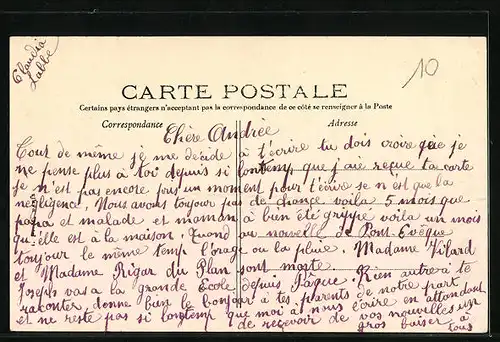 Claudia
Labbe
10
CARTE POSTALE
Certains pays étrangers n'acceptant pas la correspondance de ce côté se renseigner à la Poste
Correspondance
Adresse
Chère Andrée
Tout de même je me décide à t'écrire tu dois croire que je
ne pense plus à toi depuis si lontemp que j'aie reçue ta carte
je n'est pas encore pris un moment pour t'écrire se n'est que la
négligence. Nous avons toujour pas de chance voila 5 mois que
papa et malade et maman à bien été grippe voila un mois
qu'elle est à la maison. Quand au nouvelle de Pont-Evêque
toujour le même temp l'orage ou la pluie. Madame Vilard
et Madame Rigar du Plan sont morte.
Joseph vas a la grande Ecole depuis Paque. Rien autre à te
raconter, donne bien le bonjour à tes parents de notre part
et ne reste pas si lontemp que moi à nous écrire en attendant
de recevoir de vos nouvelles un
gros baiser à
tous